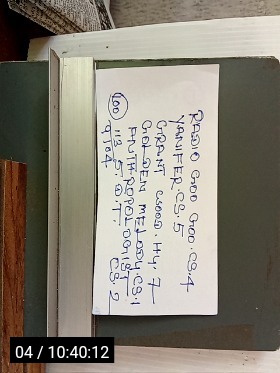 RADIO GOO GOO. CS. 4
YANIFER. CS. 5
GRANT WOOD. H4. 7
GOLDEN MELODY. CS. 1
ANTHROPOLOGIST
CS. 2
100
113 5. @. T.
9104
04 / 10:40:12